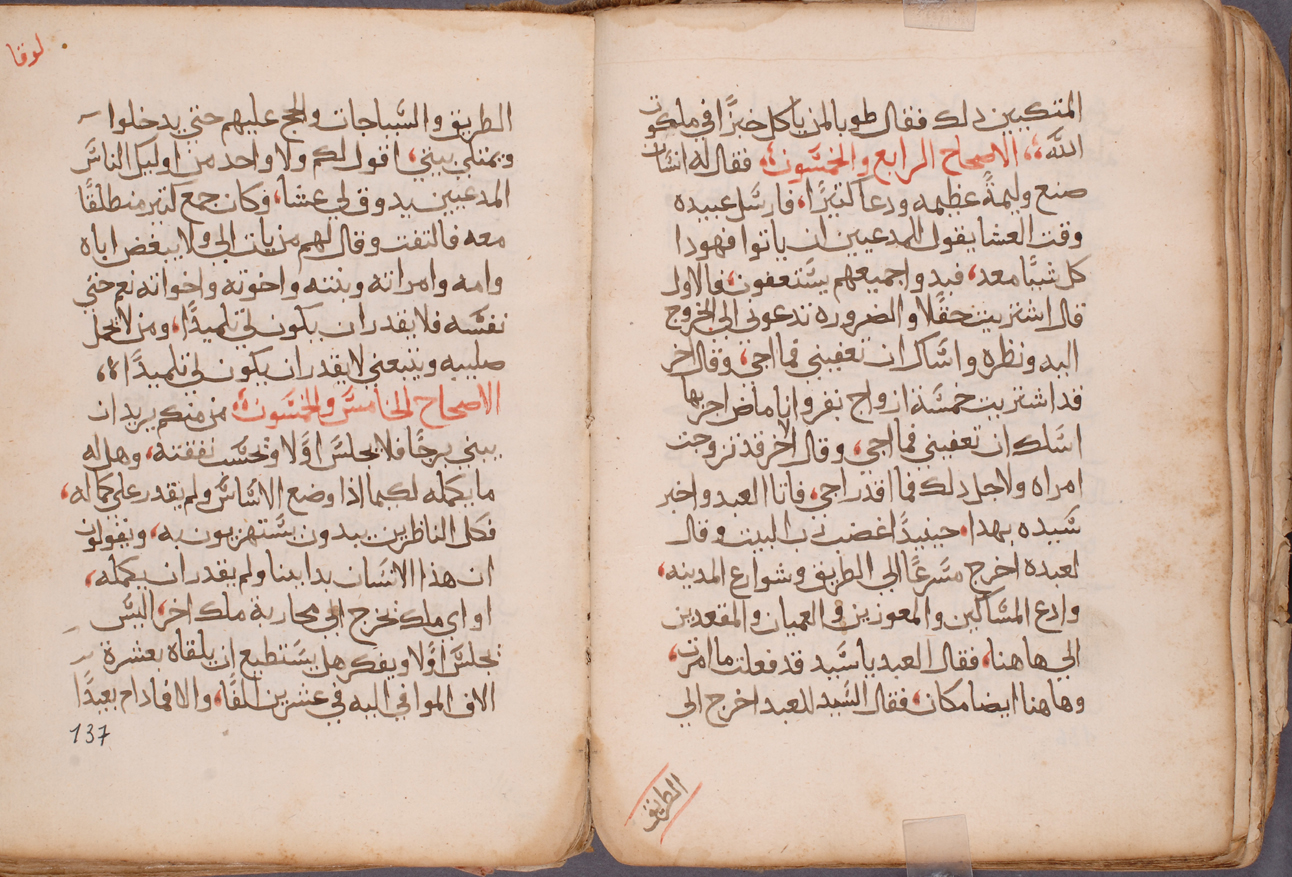 المتكيين ذلك فقال طوبا لمن ياكل خبزًا في ملكوت
الله،، الاصحاح الرابع والخمسون،، فقال له انسان
صنع وليمةً عظيمه ودعا كثيرًا، فارسل عبيده
وقت العشا يقول للمدعيين ان ياتوا فهودا
كل شيًا معد، فبدو اجميعهم يستعفون، فالاول
قال اشتريت حقلًا والضروره تدعوني الي الخروج
اليه ونظره واسالك ان تعفيني فما اجي، وقال اخر
قد اشتريت خمسة ازواج بقر وانا ماض اجربها
اسلك ان تعفيني فما اجي، وقال الاخر قد تزوجت
امراه ولاجل ذلك فما اقدر اجي، فاتا العبد واخبر
سيده بهدا، حينيدًا غضب رب البيت وقال
لعبده اخرج مسرعًا الي الطريق وشوارع المدينه،
وادع المساكين والمعوزين والعميان والمقعدين
الي هاهنا، فقال العبد يا سيد قد فعلت ما امرت،
وهاهنا ايضا مكان، فقال السيد للعبد اخرج الي
الطريق
لوقا
الطريق والسياجات والج عليهم حتي يدخلوا
ويمتلي بيتي، اقول لكم ولا واحد من اوليك الناس
المدعيين يدوق لي عشا، وكان جمع كثير منطلقًا
معه فالتفت وقال لهم من يات الي ولا يبغض اباه
وامه وامراته وبنته واخوته واخواته نعم حتي
نفسه فلا يقدر ان يكون لي تلميدًا، ومن لا يحمل
صليبه ويتبعني لا يقدر ان يكون لي تلميدًا،،
الاصحاح الخامس والخمسون،، من منكم يريد ان
يبني برجًا فلا يجلس اولا ويحسب نفقته، وهل له
ما يكمله لكيما اذا وضع الاساس ولم يقدر علي كماله،
فكل الناظرين يبدون يستهزيون به، ويقولون
ان هذا الانسان بدا يبنا ولم يقدر ان يكمله،
او اي ملك يخرج الي محاربة ملك اخر، اليس
يجلس اولا ويفكر هل يستطيع ان يلقاه بعشرة
الاف الموافي اليه في عشرين الفًا، والا فما دام بعيدًا
137